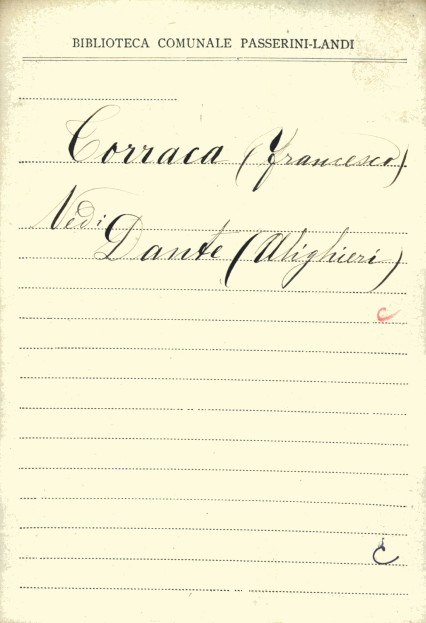 BIBLIOTECA COMUNALE PASSERINI-LANDI
Torraca (Francesco)
Vedi
Dante (Alighieri)
C
C